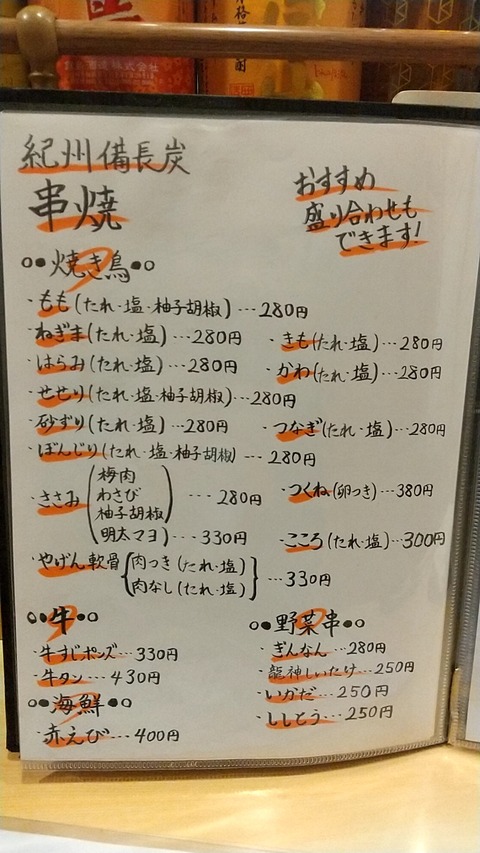 紀州備長炭
串焼
おすすめ
盛り合わせも
できます!
○●焼き鳥●○
・もも(たれ・塩・柚子胡椒)…280円
・ねぎま(たれ・塩)…280円
・きも(たれ・塩)…280円
・はらみ(たれ・塩)…280円
・かわ(たれ・塩)…280円
・せせり(たれ・塩・柚子胡椒)…280円
・砂ずり(たれ・塩)…280円
・つなぎ(たれ・塩)…280円
・ぼんじり(たれ・塩・柚子胡椒)…280円
・ささみ(梅肉
わさび
柚子胡椒)…280円
明太マヨ)…330円
・つくね(卵つき)…380円
・こころ(たれ・塩)…300円
・やげん軟骨{肉つき(たれ・塩)
肉なし(たれ・塩)}…330円
○●牛●○
・牛すじポンズ…330円
・牛タン…430円
○●海鮮●○
・赤えび…400円
○●野菜串●○
・ぎんなん…280円
・龍神しいたけ…250円
・いかだ…250円
・ししとう…250円